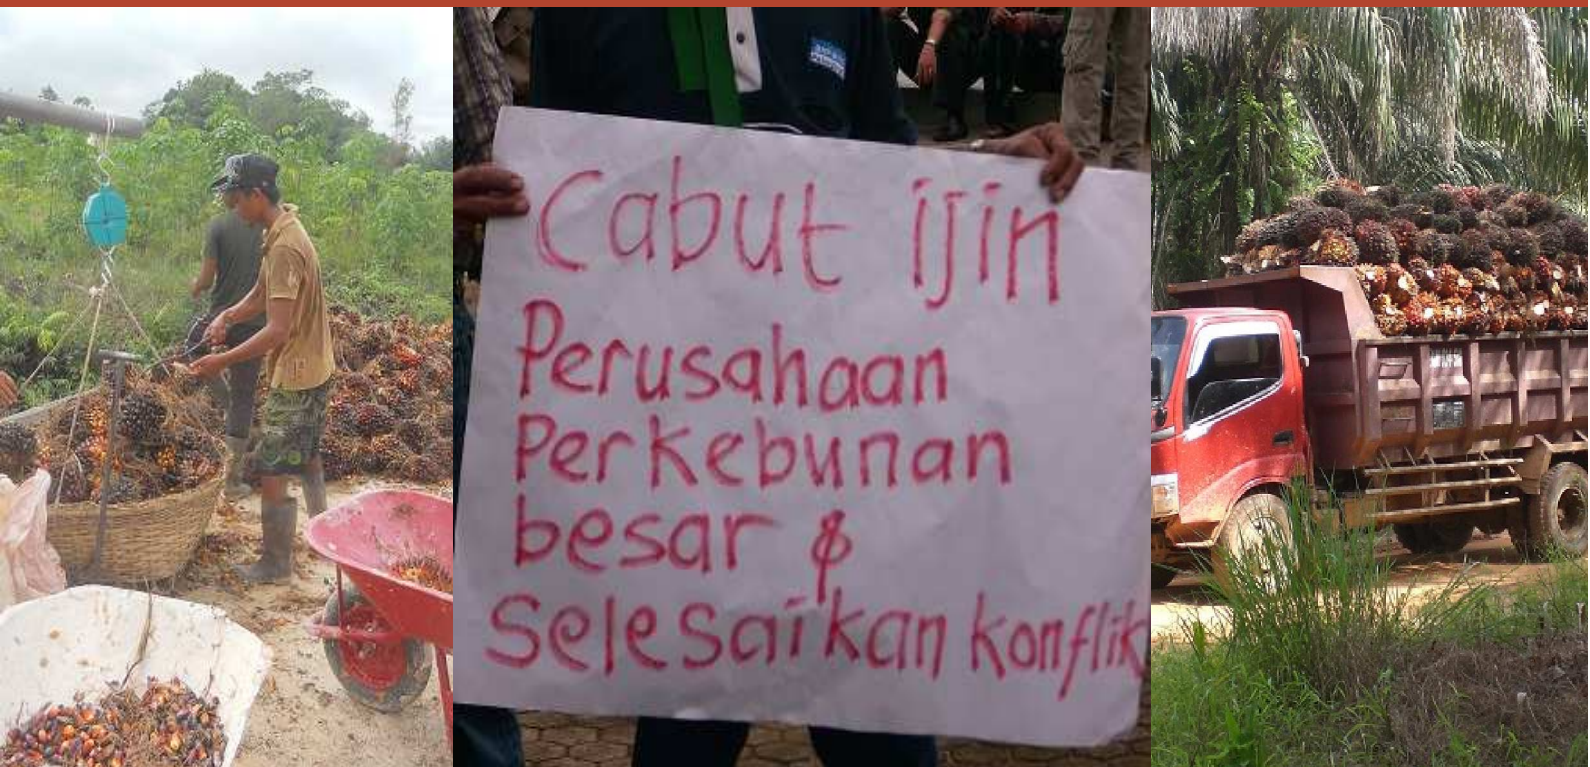 Cabut ijin
Perusahaan
Perkebunan
besar &
Selesaikan konflik